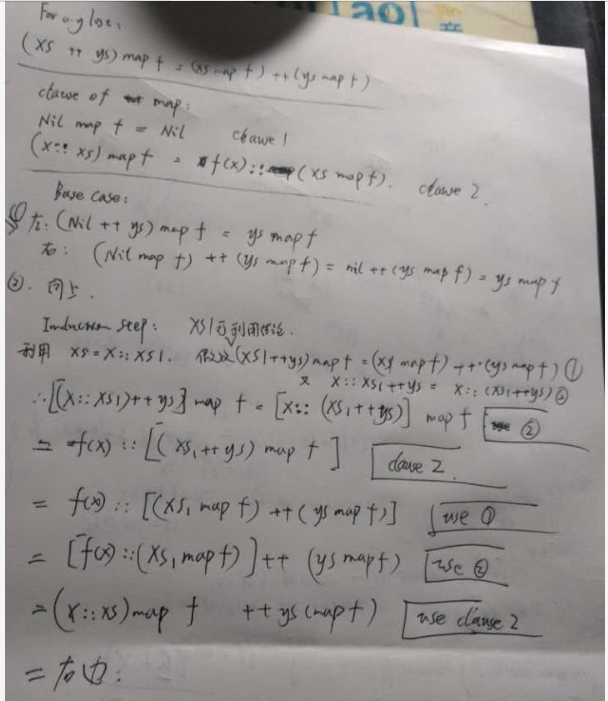 lao
音
For any list,
(xs ++ ys) map f = (xs map f) ++ (ys map f)
clause of map:
Nil map f = Nil clause 1
(x:: xs) map f = f(x):: (xs map f). clause 2.
Base case:
① 左: (Nil ++ ys) map f = ys map f
右: (Nil map f) ++ (ys map f) = nil ++ (ys map f) = ys map f
②. 同上.
Induction step: xs1可利用结论.
利用 xs = x:: xs1. 假设(xs1++ys) map f = (xs1 map f) ++ (ys map f) ①
又 x:: xs1 ++ys = x:: (xs1++ys) ②
∴ [(x:: xs1)++ ys] map f = [x:: (xs1 ++ys)] map f ②
= f(x) :: [(xs1 ++ ys) map f] clause 2
= f(x) :: [(xs1 map f) ++ (ys map f)] use ①
= [f(x) ::(xs1 map f)] ++ (ys map f) use ②
= (x::xs) map f ++ ys (map f) use clause 2
= 右边.